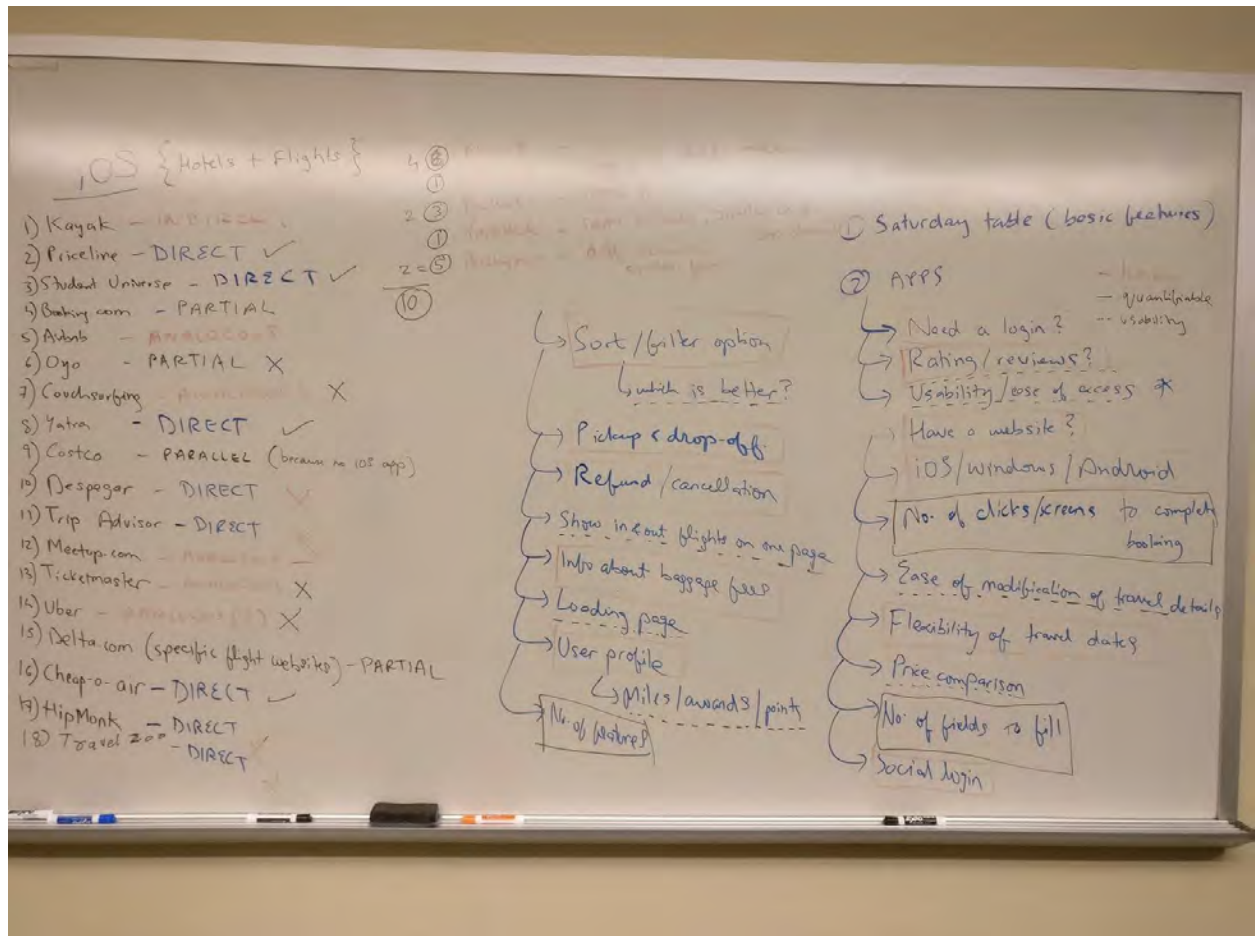 iOS {Hotels + Flights}
1) Kayak - INDIRECT
2) Priceline - DIRECT ✓
3) Student Universe - DIRECT ✓
4) Booking.com - PARTIAL
5) Airbnb - ANALOGOUS
6) Oyo - PARTIAL X
7) Couchsurfing - X
8) Yatra - DIRECT ✓
9) Costco - PARALLEL (because no iOS app)
10) Despegar - DIRECT X
11) Trip Advisor - DIRECT
12) Meetup.com -
13) Ticketmaster - X
14) Uber - X
15) Delta.com (specific flight websites) - PARTIAL
16) Cheap-o-air - DIRECT ✓
17) HipMonk - DIRECT
18) Travel zoo - DIRECT
4
1
2 3
1
2 = 5
10
Sort/filter option
which is better?
Pickup & drop-off
Refund/cancellation
Show in & out flights on one page
Info about baggage fees
Loading page
User profile
Miles/awards/points
No. of features
1 Saturday table (basic features)
2 APPS
— quantifiable
-- usability
Need a login?
Rating/reviews?
Usability/ease of access *
Have a website?
iOS/windows/Android
No. of clicks/screens to complete
booking
Ease of modification of travel details
Flexibility of travel dates
Price comparison
No. of fields to fill
Social login